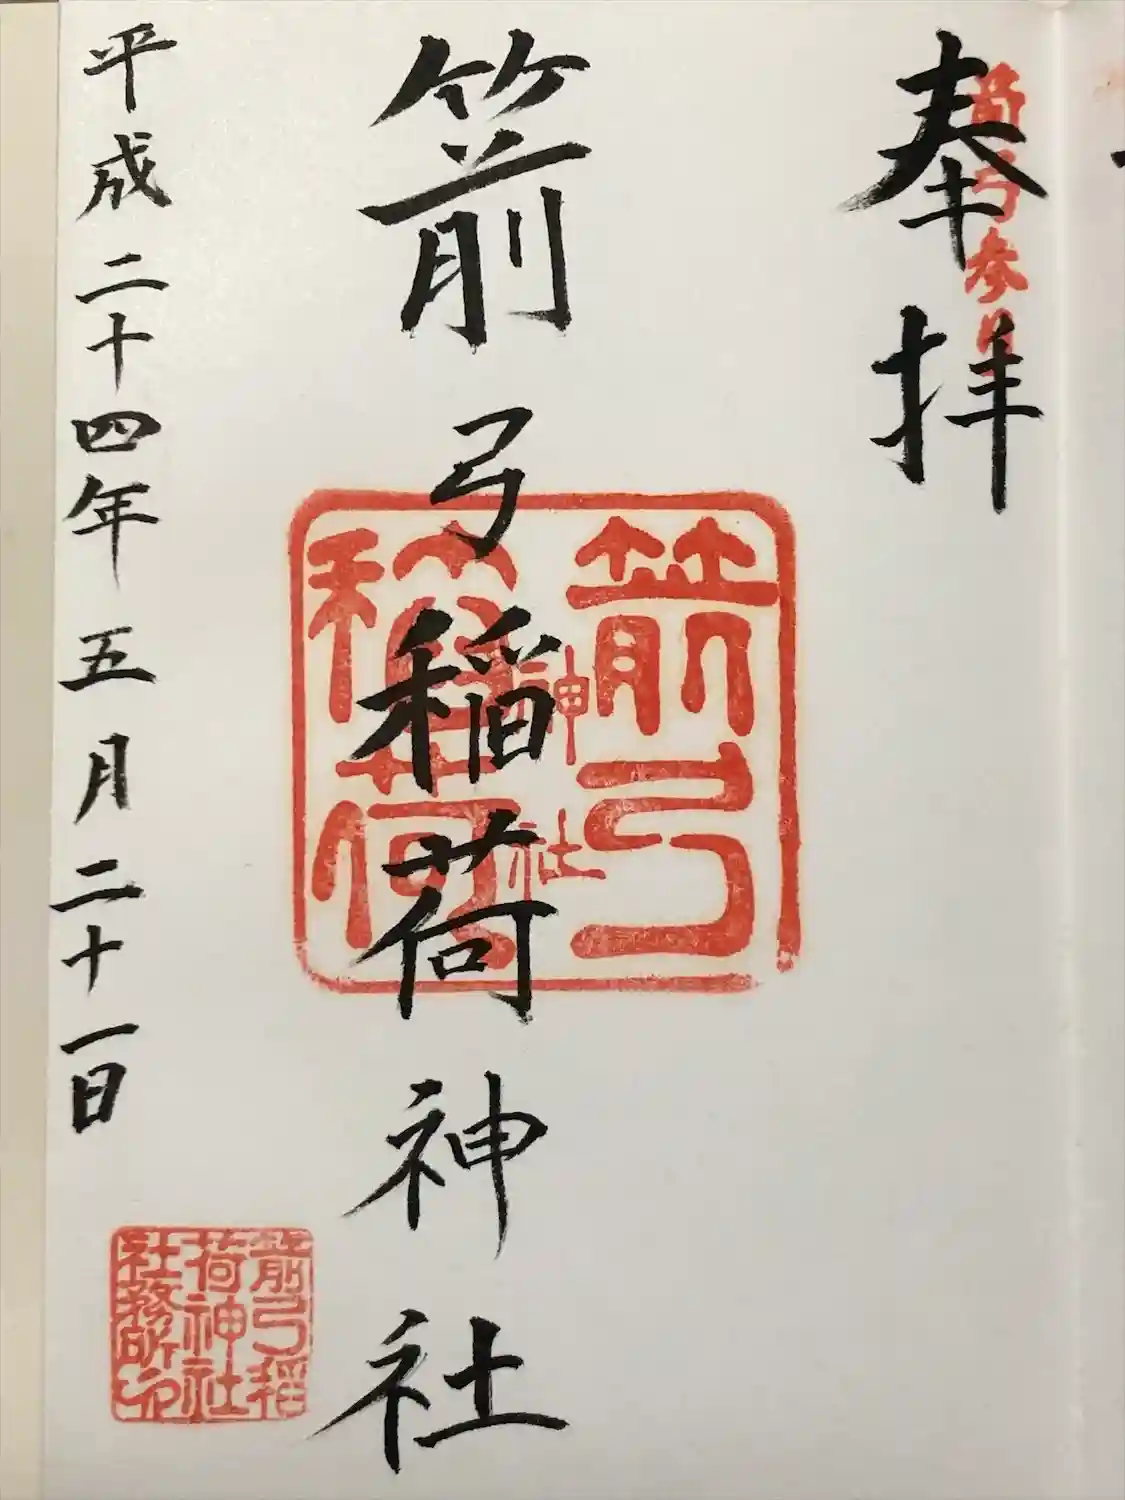 奉拝
箭弓稲荷神社
平成二十四年五月二十一日
箭弓
神社
稲荷
箭弓稲
荷神社
社務所印